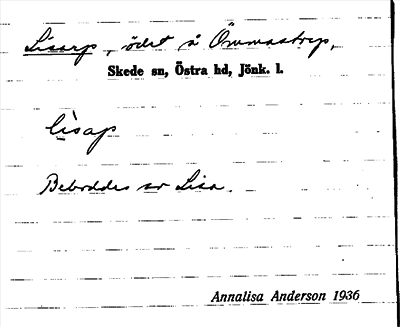 Lisarp, ödet å Ömmestorp,
Skede sn, Östra hd, Jönk. l.
lisap
Beboddes av Lisa.
Annalisa Anderson 1936